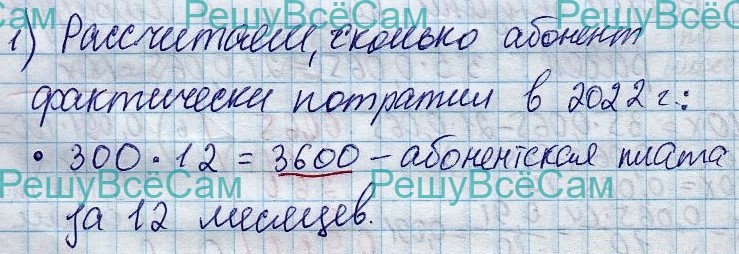 РешуВсёСам РешуВсёСам РешуВсёСам
1) Рассчитаем, сколько абонент
фактически потратил в 2022 г.:
• 300 · 12 = 3600 – абонентская плата
РешуВсёСам РешуВсёСам
за 12 месяцев.